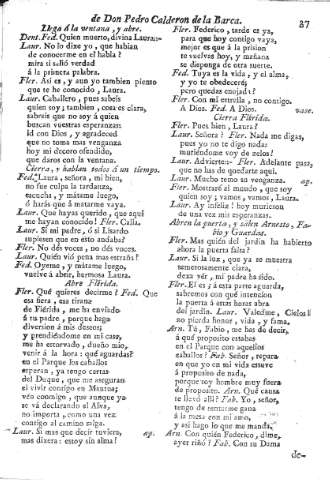 de Don Pedro Calderon de la Barca.
37
Llega á la ventana, y abre.
Dent. Fed. Quien muerto, divina Laura:-
Laur. No lo dixe yo, que habian
de conocerme en el habla?
mira si salió verdad
á la primera palabra.
Fler. Asi es, y aun yo tambien pienso
que te he conocido, Laura.
Laur. Caballero, pues sabeis
quien soy; tambien, cosa es clara,
sabreis que no soy á quien
buscan vuestras esperanzas:
id con Dios, y agradeced
que no toma mas venganza
hoy mi decoro ofendido,
que daros con la ventana.
Cierra, y hablan todos á un tiempo.
Fed. Laura, señora, mi bien,
no fue culpa la tardanza,
escucha, y mátame luego,
ó harás que á matarme vaya.
Laur. Que hayas querido, que aquí
me hayan conocido! Fler. Calla.
Laur. Si mi padre, ó si Lisardo
supiesen que en esto andabas!
Fler. No dés voces, no dés voces.
Laur. Quién vió pena mas estraña!
Fed. Oyeme, y mátame luego,
vuelve á abrir, hermosa Laura.
Abre Flérida.
Fler. Qué quieres decirme? Fed. Que
esa fiera, esa tirana
de Flérida, me ha enviado
á tu padre, porque haga
diversion á mis deseos;
y prendiéndome en mi casa,
me ha estorvado, dueño mio,
venir á la hora: qué aguardas?
en el Parque los caballos
esperan, ya tengo cartas
del Duque, que me aseguran
el vivir contigo en Mantua;
vén conmigo, que aunque ya
se vá declarando el Alva,
no importa, como una vez
contigo al camino salga.
Laur. Si mas que decir tuviera, ap.
mas dixera: estoy sin alma!
Fler. Federico, tarde es ya,
para que hoy contigo vaya,
mejor es que á la prision
te vuelvas hoy, y mañana
se disponga de otra suerte.
Fed. Tuya es la vida, y el alma,
y yo te obedeceré;
pero quedas enojada?
Fler. Con mi estrella, no contigo.
A Dios. Fed. A Dios. vase.
Cierra Flérida.
Fler. Pues bien, Laura?
Laur. Señora? Fler. Nada me digas,
pues yo no te digo nada:
muriéndome voy de zelos!
Laur. Advierte:- Fler. Adelante pasa,
que no has de quedarte aquí.
Laur. Mucho temo su venganza. ap.
Fler. Mostraré al mundo, que soy
quien soy; vamos, vamos, Laura.
Laur. Ay infelíz! hoy murieron
de una vez mis esperanzas.
Abren la puerta, y salen Arnesto, Fabio
y Guardas.
Fler. Mas quién del jardin ha habierto
ahora la puerta falsa?
Laur. Si la luz, que ya se muestra
temerosamente clara,
dexa vér, mi padre ha sido.
Fler. El es; á esta parte aguarda,
sabremos con qué intencion
la puerta á estas horas abra
del jardin. Laur. Valedme, Cielos!
no pierda honor, vida, y fama.
Arn. Tú, Fabio, me has de decir,
á qué proposito estabas
en el Parque con aquellos
caballos? Fab. Señor, repara
en que yo en mi vida estuve
á proposito de nada,
porque soy hombre muy fuera
de proposito. Arn. Qué causa
te llevó allí? Fab. Yo, señor,
tengo de sentarse gana
á la mesa con mi amo,
y así hago lo que me manda.
Arn. Con quién Federico, dime,
ayer riñó? Fab. Con su Dama
de-